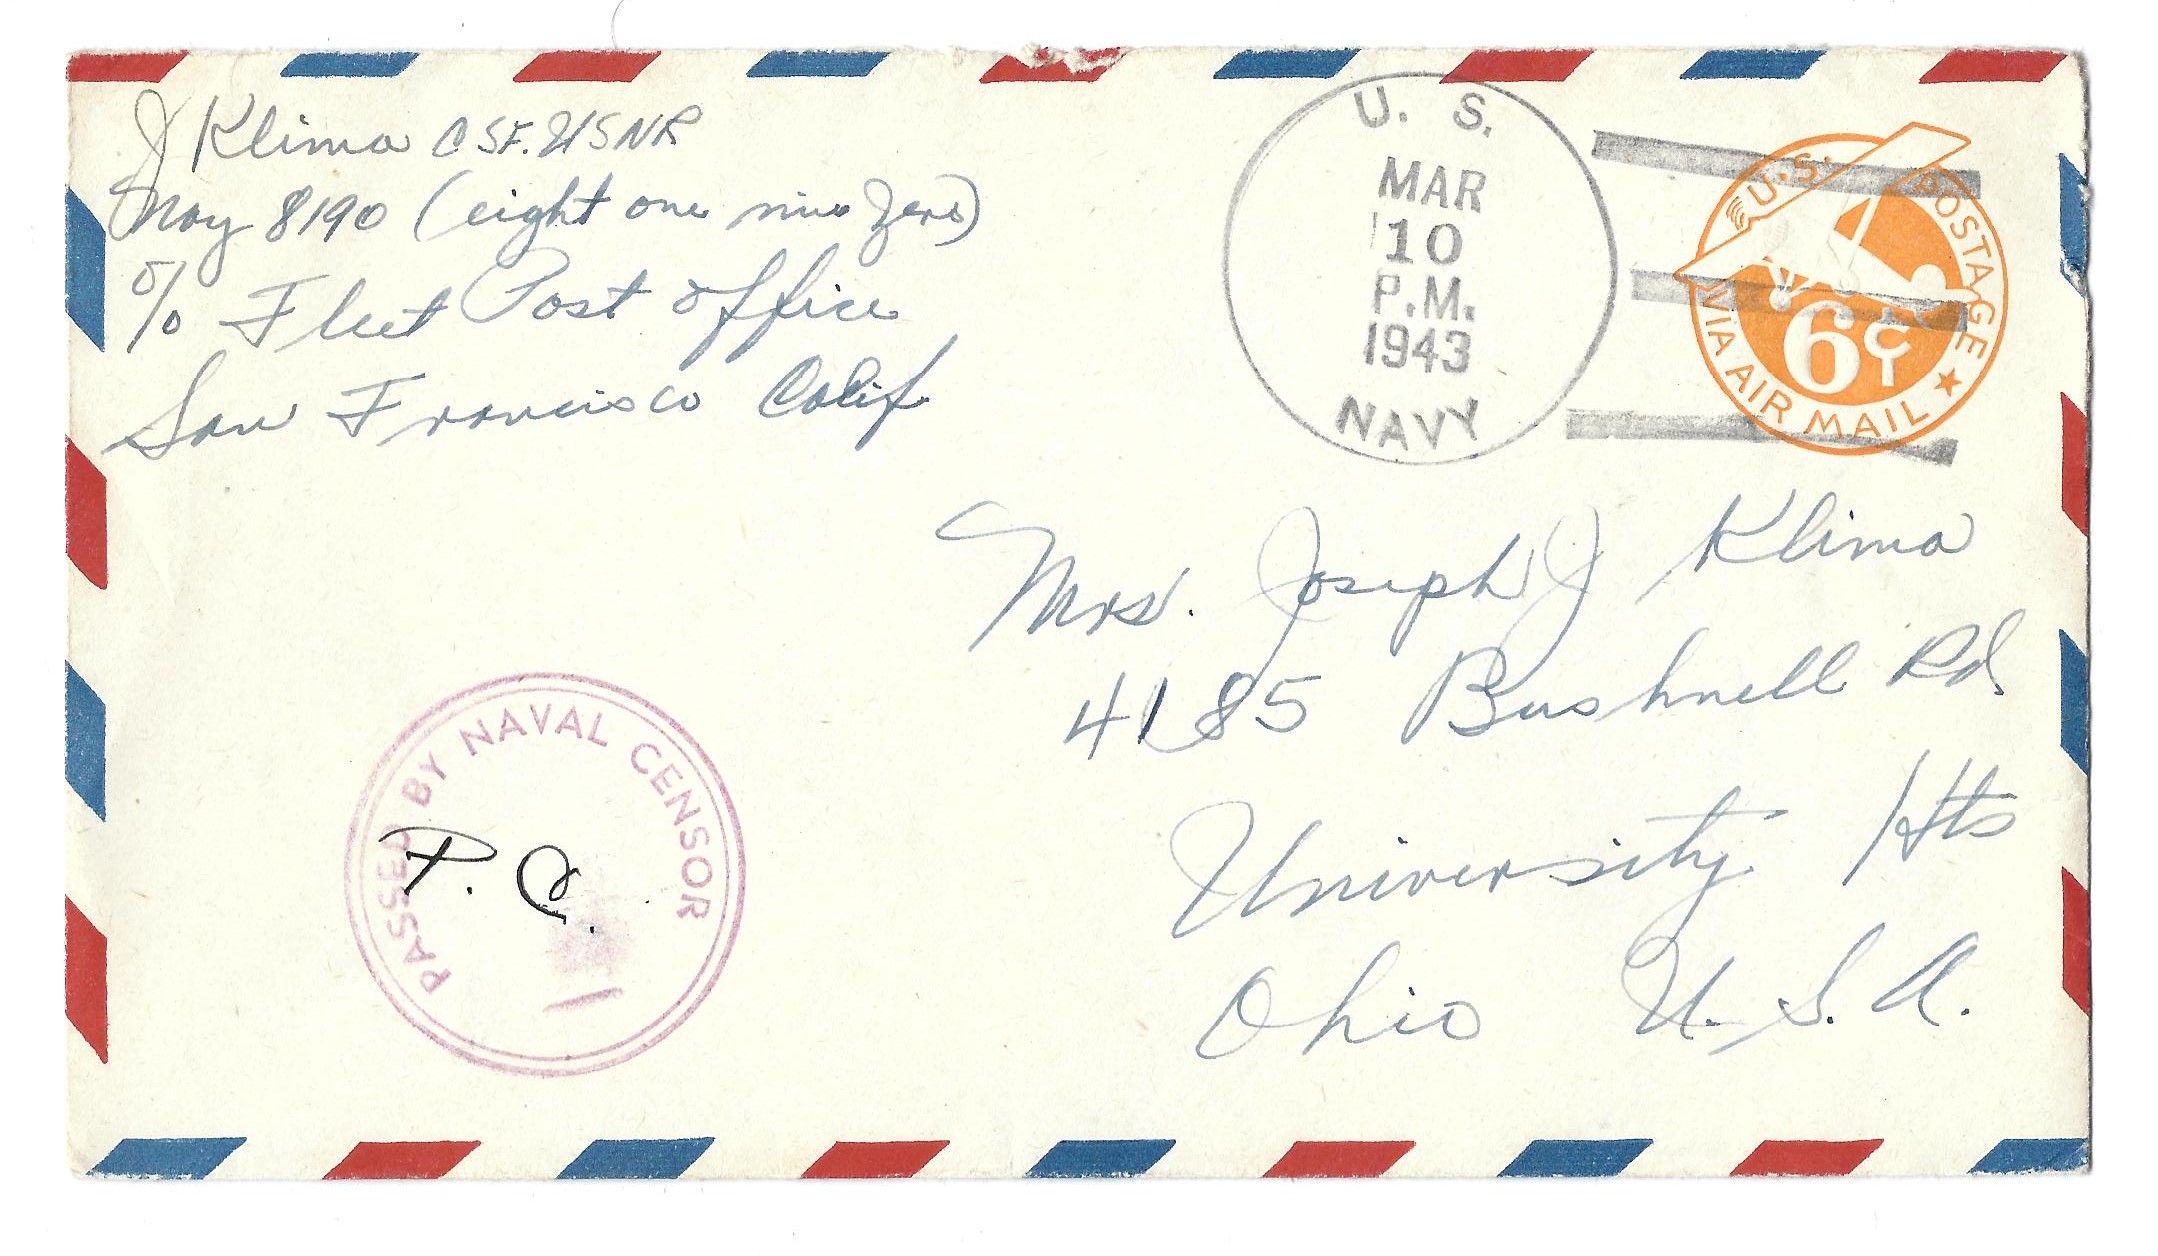 J Klima CSF. USNR
Navy 8190 (eight one nine zero)
c/o Fleet Post Office
San Francisco Calif
U. S.
MAR
10
P.M.
1943
NAVY
U.S. POSTAGE
6¢
VIA AIR MAIL
Mrs. Joseph J Klima
4185 Bushnell Rd.
University Hts
Ohio U.S.A.
PASSED BY NAVAL CENSOR
P. C.